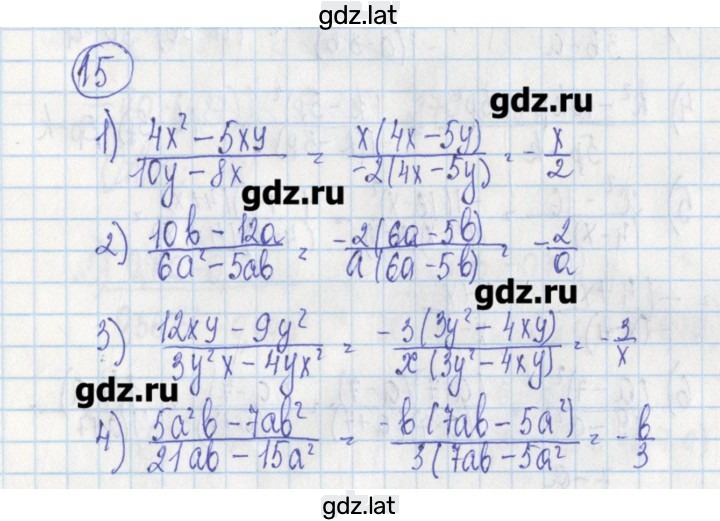 gdz.lat
15
gdz.ru
1) (4x² - 5xy)/(10y - 8x) = (x(4x - 5y))/(-2(4x - 5y)) = -x/2
gdz.ru
2) (10b - 12a)/(6a² - 5ab) = (-2(6a - 5b))/(a(6a - 5b)) = -2/a
gdz.ru
3) (12xy - 9y²)/(3y²x - 4yx²) = (-3(3y² - 4xy))/(x(3y² - 4xy)) = -3/x
gdz.ru
4) (5a²b - 7ab²)/(21ab - 15a²) = (-b(7ab - 5a²))/(3(7ab - 5a²) = -b/3
gdz.lat